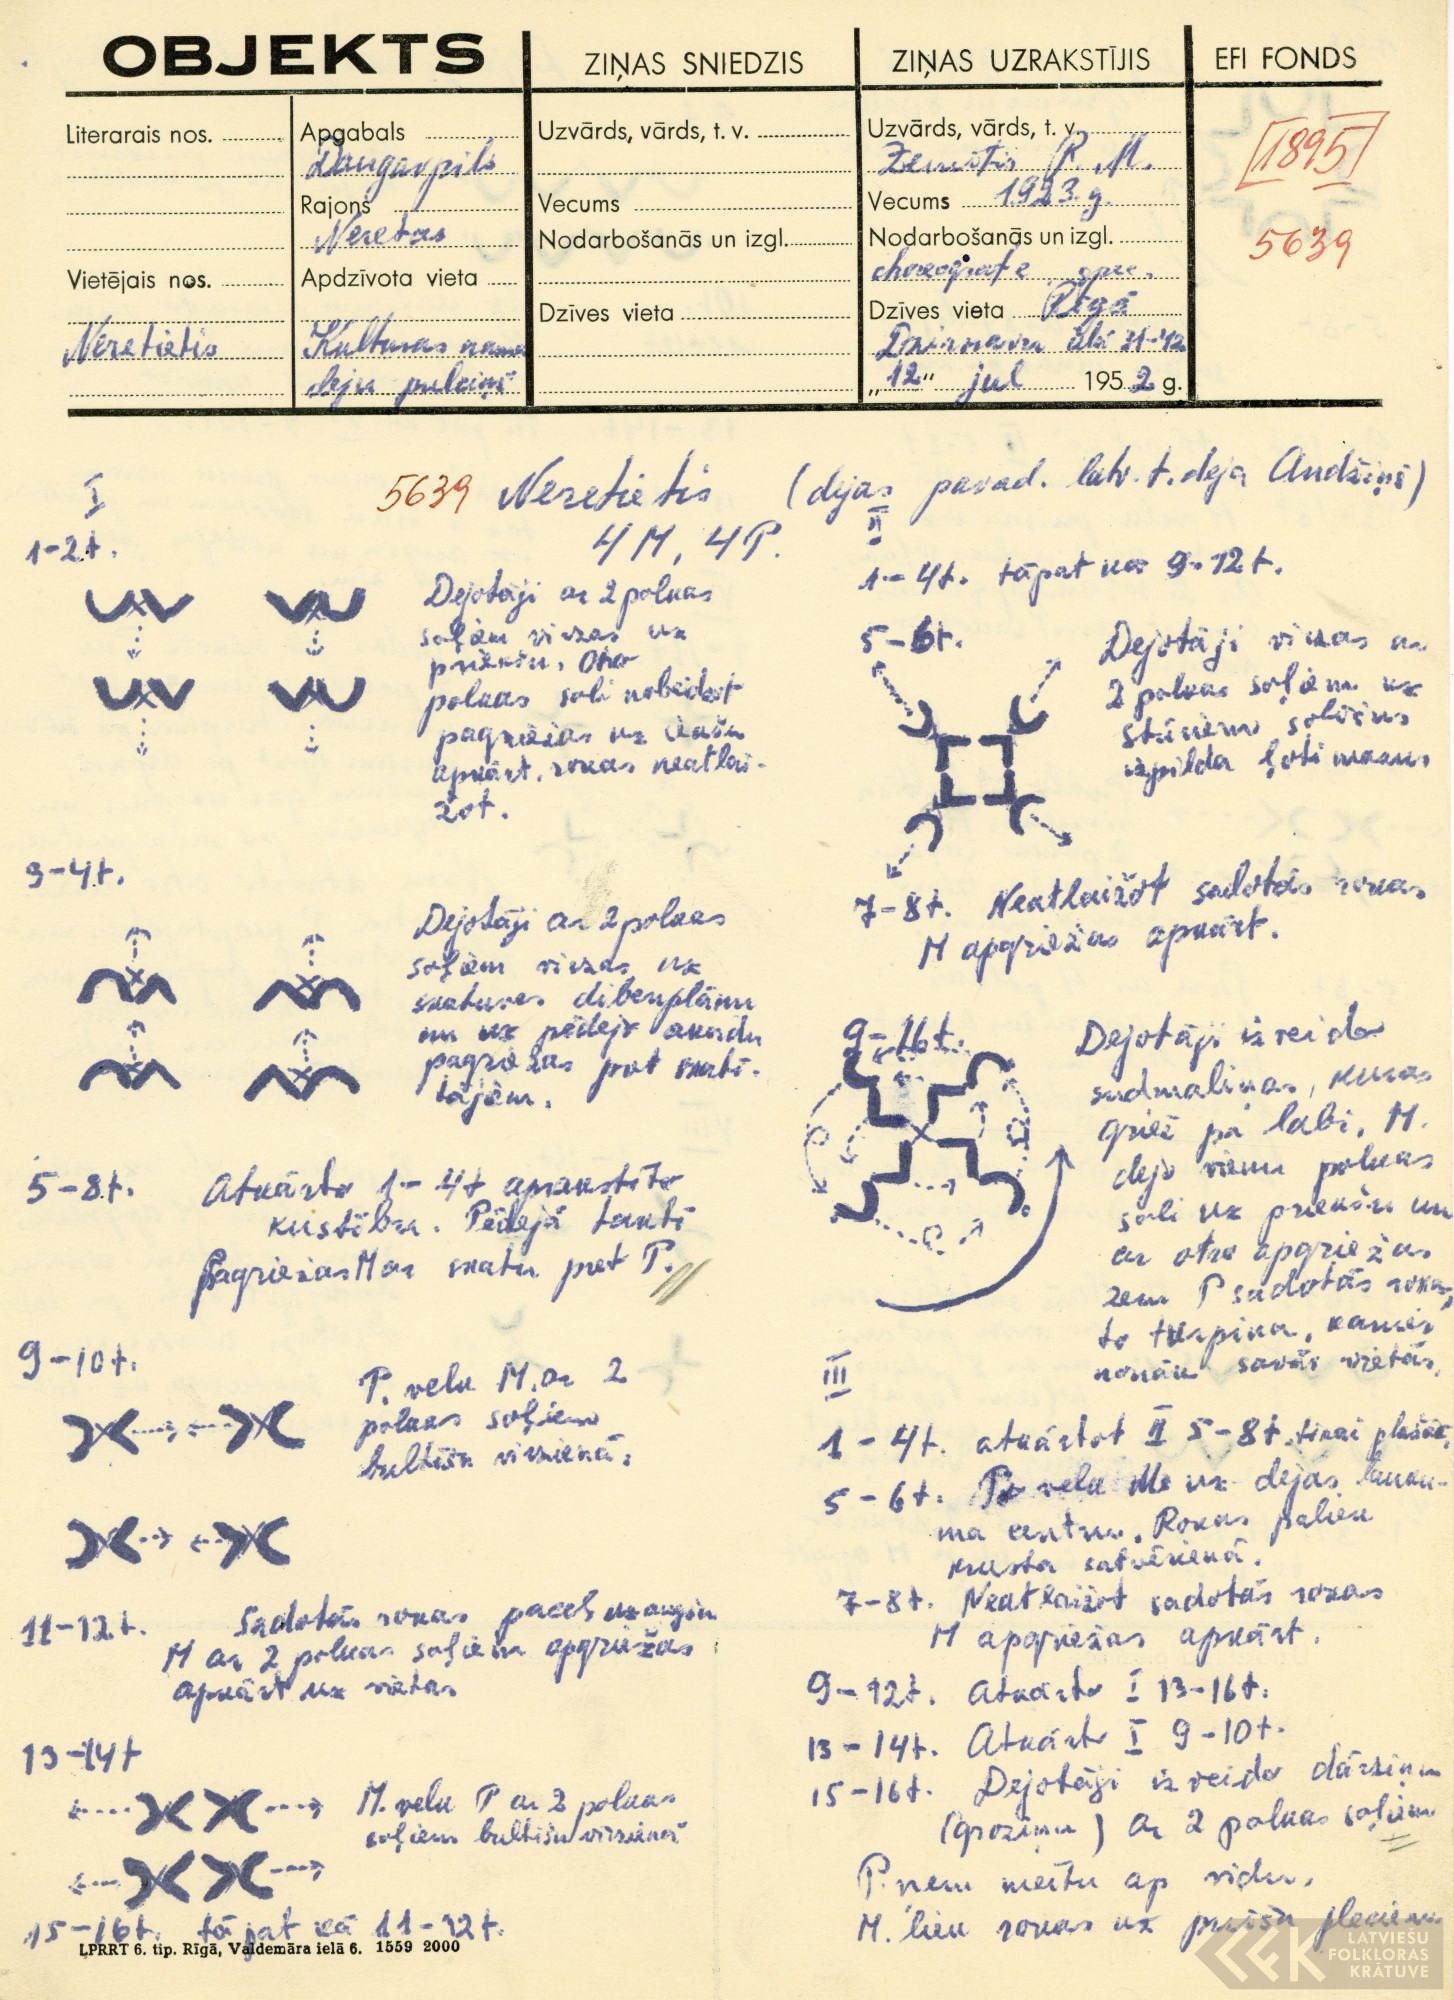 OBJEKTS
ZIŅAS SNIEDZIS
ZIŅAS UZRAKSTĪJIS
EFI FONDS
Literarais nos.
Vietējais nos.
Neretietis
Apgabals
Daugavpils
Rajons
Neretas
Apdzīvota vieta
Kulturas nama
deju pulciņš
Uzvārds, vārds, t. v.
Vecums
Nodarbošanās un izgl.
Dzīves vieta
Uzvārds, vārds, t. v.
R. M.
Vecums 1923. g.
Nodarbošanās un izgl.
choreografe spec.
Dzīves vieta Rīgā
Dzirnavu 21-42
„12" jul 1952 g.
1895
5639
5639 Neretietis (dejas pavad. latv. t. deja Andžiņš)
4M, 4P.
I
1-2t.
Dejotāji ar 2 polkas
soļiem virzas uz
priekšu. Otro
polkas soli nobeidzot
pagriežas uz iekšu
apkārt, rokas neatlai-
žot.
3-4t.
Dejotāji ar 2 polkas
soļiem virzas uz
skatuves dibenplānu
un uz pēdejo akordu
pagriežas pret skatī-
tājiem.
5-8t. Atkārto 1-4t aprakstīto
kustību. Pēdejā taktī
Pagriežas M ar skatu pret P.
9-10t.
P. velk M. ar 2
polkas soļiem
bultiņu virzienā.
11-12t. Sadotās rokas paceļ uz augšu
M ar 2 polkas soļiem apgriežas
apkārt uz vietas
13-14t
M. velk P ar 2 polkas
soļiem bultiņu virzienā
15-16t. tāpat kā 11-12t.
II
1-4t. tāpat kā 9-12t.
5-6t.
Dejotāji virzas ar
2 polkas soļiem uz
stūriem solīšus
izpilda ļoti mazus
7-8t. Neatlaižot sadotās rokas
M apgriežas apkārt.
9-16t.
Dejotāji izveido
sudmaliņas, kuras
griež pa labi, M.
dejo vienu polkas
soli uz priekšu un
ar otro apgriežas
zem P sadotās rokas,
to turpina, kamēr
nonāk savās vietās.
III
1-4t. atkārtot II 5-8t. tikai plašāk,
5-6t. P velk M uz dejas lauku-
ma centru. Rokas paliek
krusta satvērienā.
7-8t. Neatlaižot sadotās rokas
M apgriežas apkārt.
9-12t. Atkārto I 13-16t.
13-14t. Atkārto I 9-10t.
15-16t. Dejotāji izveido dārziņu
(groziņu) ar 2 polkas soļiem
P. ņem meitu ap vidu.
M. liek rokas uz puišu pleciem
LPRRT 6. tip. Rīgā, Valdemāra ielā 6. 1559 2000
LATVIEŠU
FOLKLORAS
KRĀTUVE